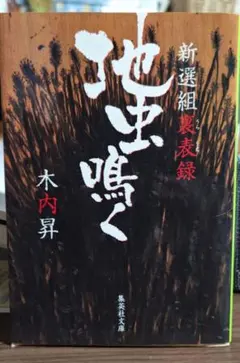 新選組裏表録
地虫鳴く
木内昇
集英社文庫